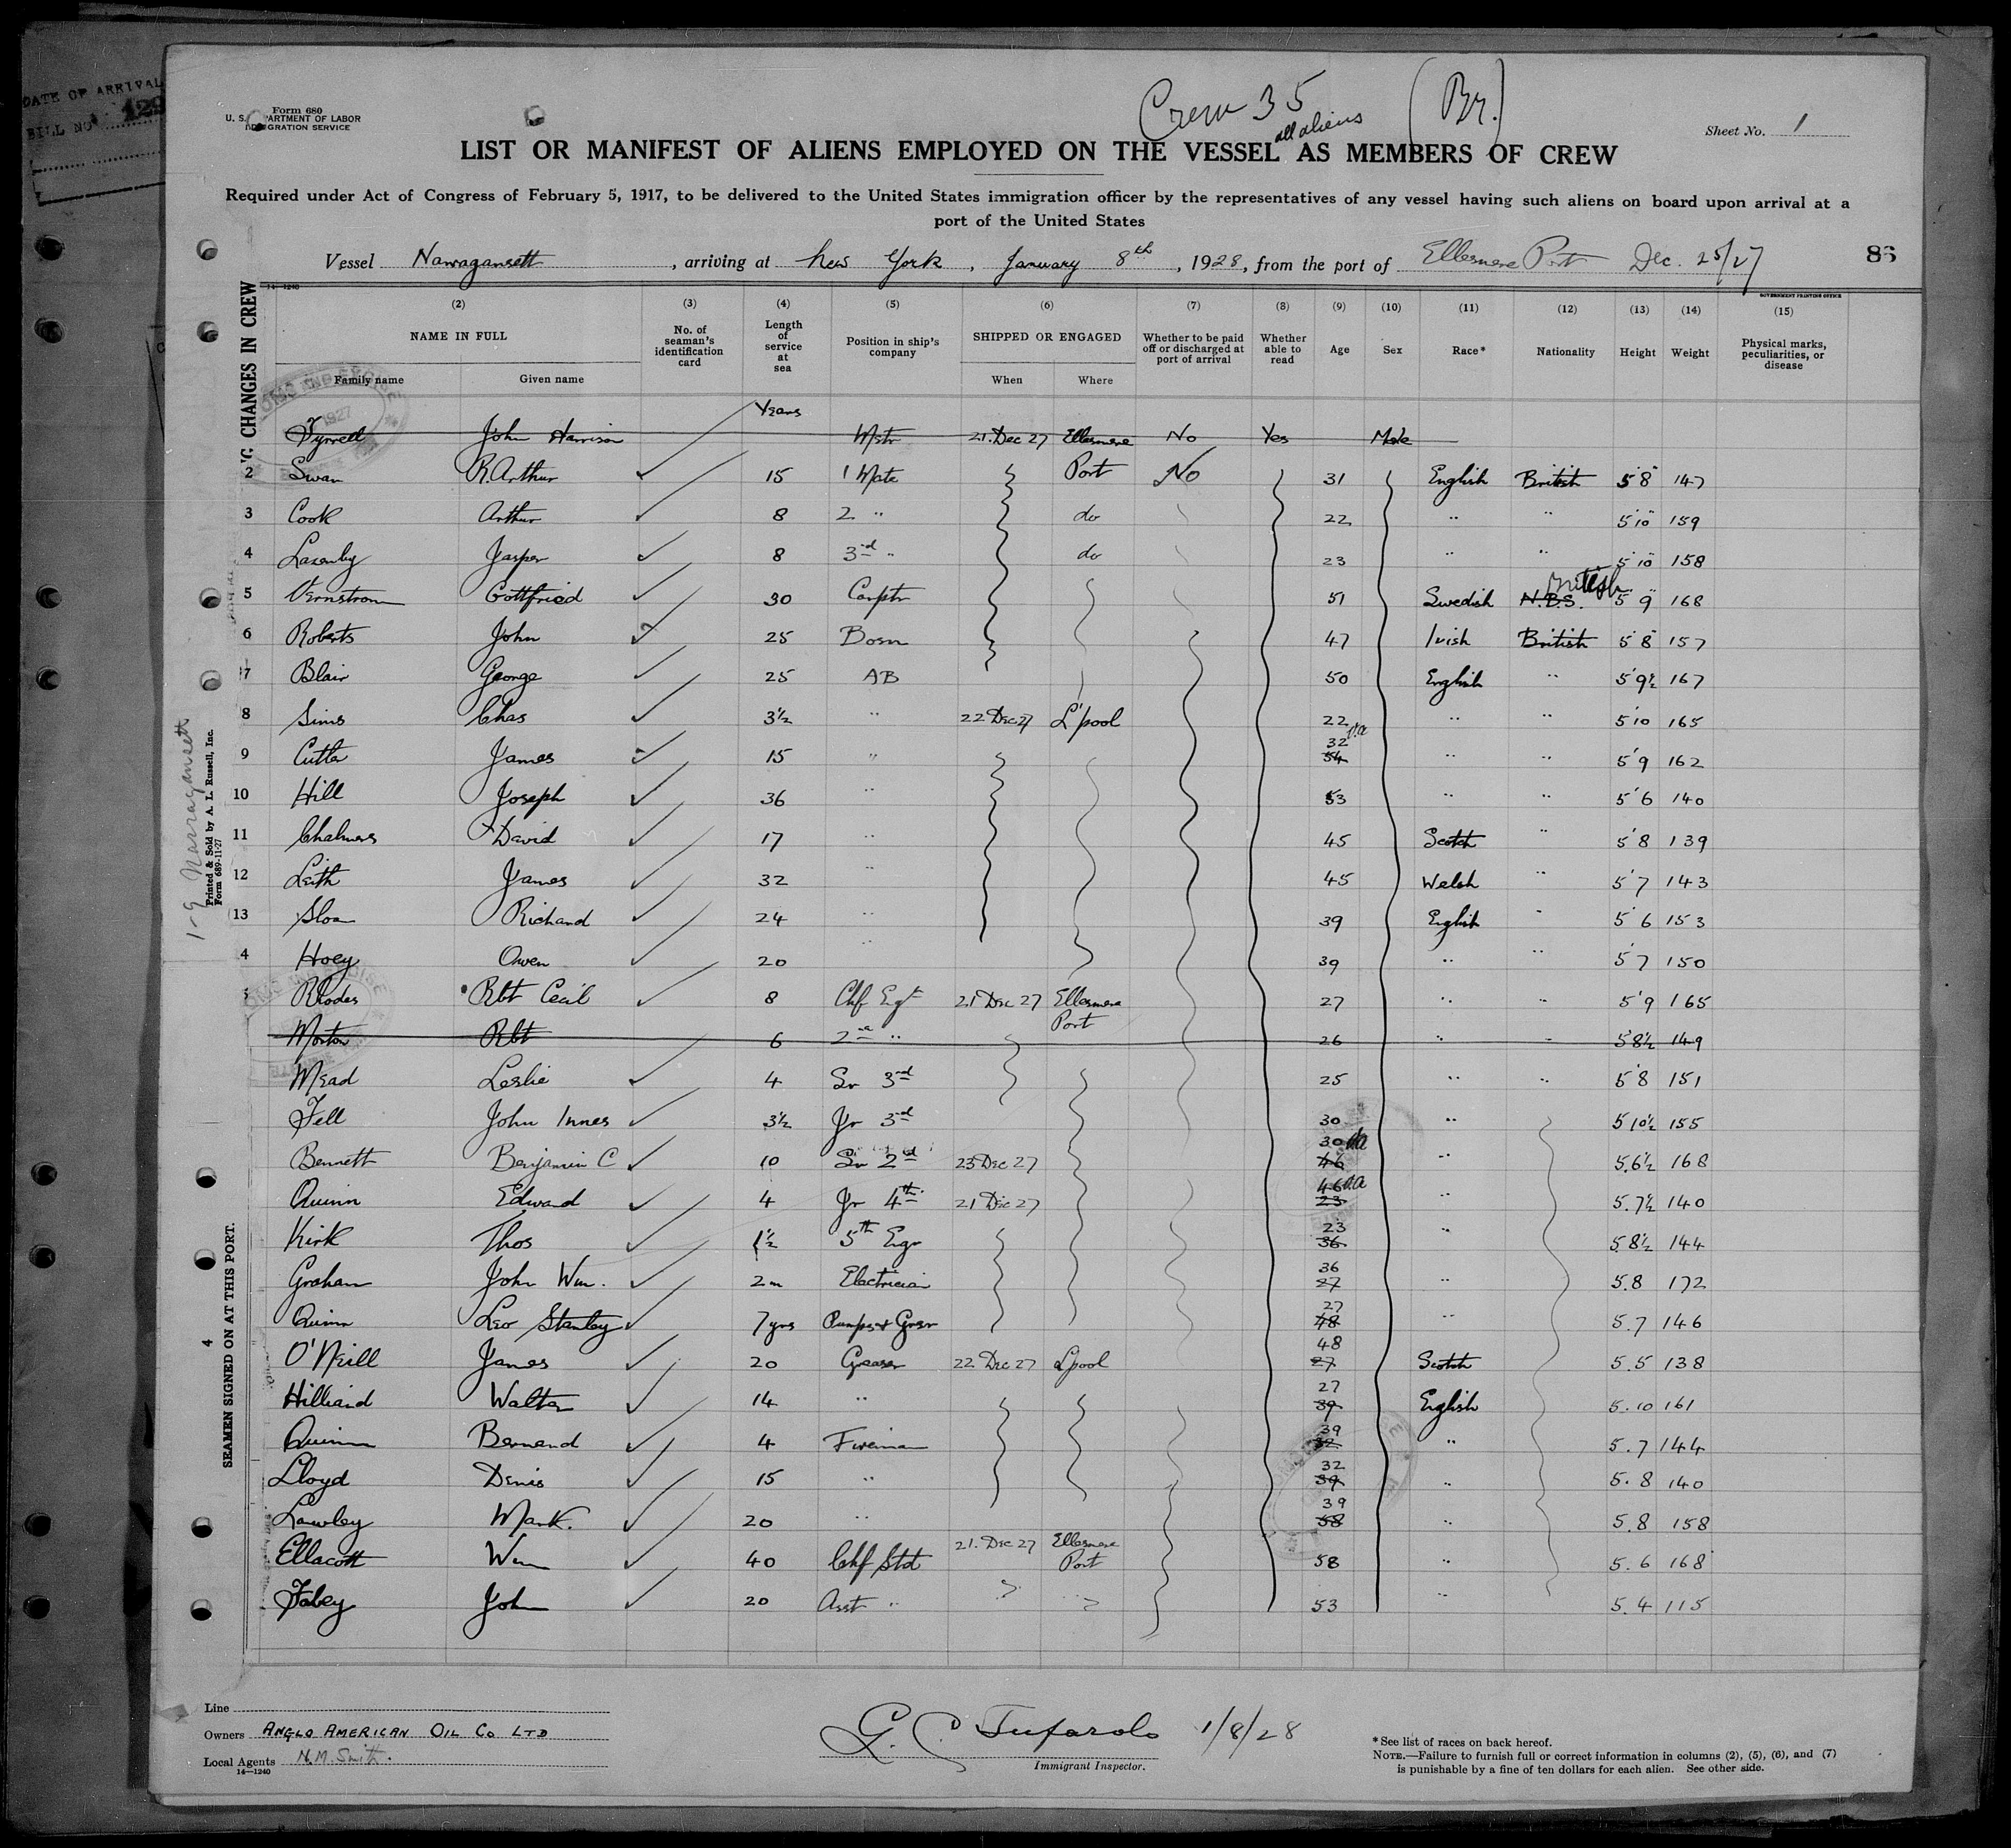 DATE OF ARRIVAL
BILL NO 129
Form 680
U. S. DEPARTMENT OF LABOR
IMMIGRATION SERVICE
Crew 35
all aliens
(Br.)
Sheet No. 1
LIST OR MANIFEST OF ALIENS EMPLOYED ON THE VESSEL AS MEMBERS OF CREW
Required under Act of Congress of February 5, 1917, to be delivered to the United States immigration officer by the representatives of any vessel having such aliens on board upon arrival at a
port of the United States
Vessel Narragansett, arriving at New York, January 8th, 1928, from the port of Ellesmere Port Dec. 25/27
86
14-1240
GOVERNMENT PRINTING OFFICE
(2) (3) (4) (5) (6) (7) (8) (9) (10) (11) (12) (13) (14) (15)
NAME IN FULL No. of seaman's identification card Length of service at sea Position in ship's company SHIPPED OR ENGAGED Whether to be paid off or discharged at port of arrival Whether able to read Age Sex Race* Nationality Height Weight Physical marks, peculiarities, or disease
Family name Given name When Where
CHANGES IN CREW
Years
Tyrrell John Harrison Mstr 21 Dec 27 Ellesmere No Yes Male
2 Swan R. Arthur 15 1 Mate Port No 31 English British 5'8" 147
3 Cook Arthur 8 2 " do 22 " " 5'10" 159
4 Lazenby Jasper 8 3rd " do 23 " " 5'10" 158
British
5 Vernstrom Gottfried 30 Carptr 51 Swedish N.B.S. 5'9" 168
6 Roberts John 25 Bosn 47 Irish British 5'8" 157
7 Blair George 25 AB 50 English " 5'9½ 167
8 Sims Chas 3½ " 22 Dec 27 L'pool 22 " " 5'10 165
9 Cutler James 15 " 32 54 " " 5'9 162
10 Hill Joseph 36 " 53 " " 5'6 140
11 Chalmers David 17 " 45 Scotch " 5'8 139
12 Leith James 32 " 45 Welsh " 5'7 143
13 Sloan Richard 24 " 39 English " 5'6 153
4 Hoey Owen 20 " 39 " " 5'7 150
5 Rhodes Rbt Cecil 8 Chf Egr 21 Dec 27 Ellesmere Port 27 " " 5'9 165
Morton Rbt 6 2nd " 26 " " 5'8½ 149
Mead Leslie 4 Sr 3rd 25 " " 5'8 151
Fell John Innes 3½ Jr 3rd 30 " 5 10½ 155
Bennett Benjamin C 10 Sr 2nd 23 Dec 27 30 46 " 5.6½ 168
Quinn Edward 4 Jr 4th 21 Dec 27 46 23 " 5.7½ 140
Kirk Thos 1½ 5th Egr 23 36 " 5 8½ 144
Graham John Wm. 2m Electrician 36 27 " 5.8 172
Quinn Leo Stanley 7 yrs Pumps & Grsr 27 48 " 5.7 146
O'Neill James 20 Greaser 22 Dec 27 L'pool 48 27 Scotch 5.5 138
Hilliard Walter 14 " 27 39 English 5.10 161
Quinn Bernard 4 Fireman 39 32 " 5.7 144
Lloyd Denis 15 " 32 39 " 5.8 140
Lawley Mark. 20 " 39 58 " 5.8 158
Ellacott Wm 40 Chf Std 21. Dec 27 Ellesmere Port 58 " 5.6 168
Fabey John 20 Asst " 53 " 5.4 115
1-9 Narragansett
Printed & Sold by A. L. Russell, Inc.
Form 689-11-27
4
SEAMEN SIGNED ON AT THIS PORT.
Line
Owners ANGLO AMERICAN OIL CO LTD
Local Agents N.M. Smith.
14—1240
G. C. Tufarolo 1/8/28
Immigrant Inspector.
*See list of races on back hereof.
NOTE.—Failure to furnish full or correct information in columns (2), (5), (6), and (7)
is punishable by a fine of ten dollars for each alien. See other side.